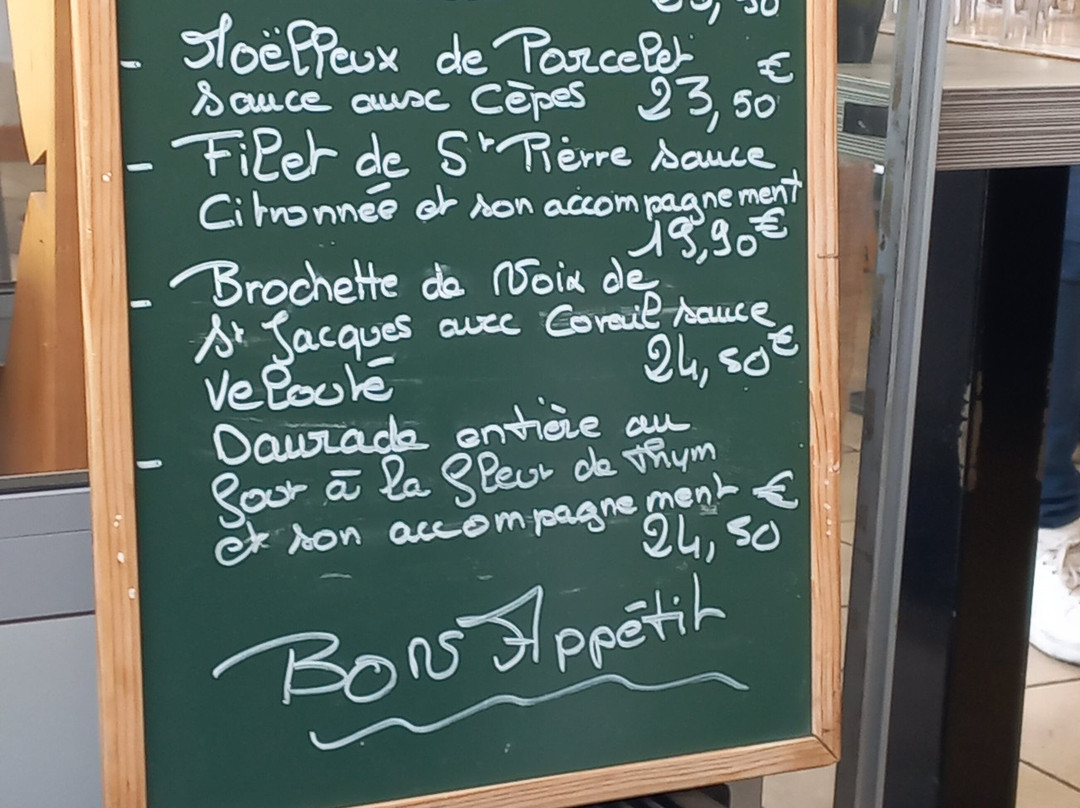 - Moëlleux de Porcelet €
sauce aux Cèpes 23,50
- Filet de St Pierre sauce
Citronnée et son accompagnement
19,90€
- Brochette de Noix de
St Jacques avec Corail sauce
Velouté 24,50€
- Daurade entière au
four à la fleur de thym
et son accompagnement €
24,50
Bon Appétit